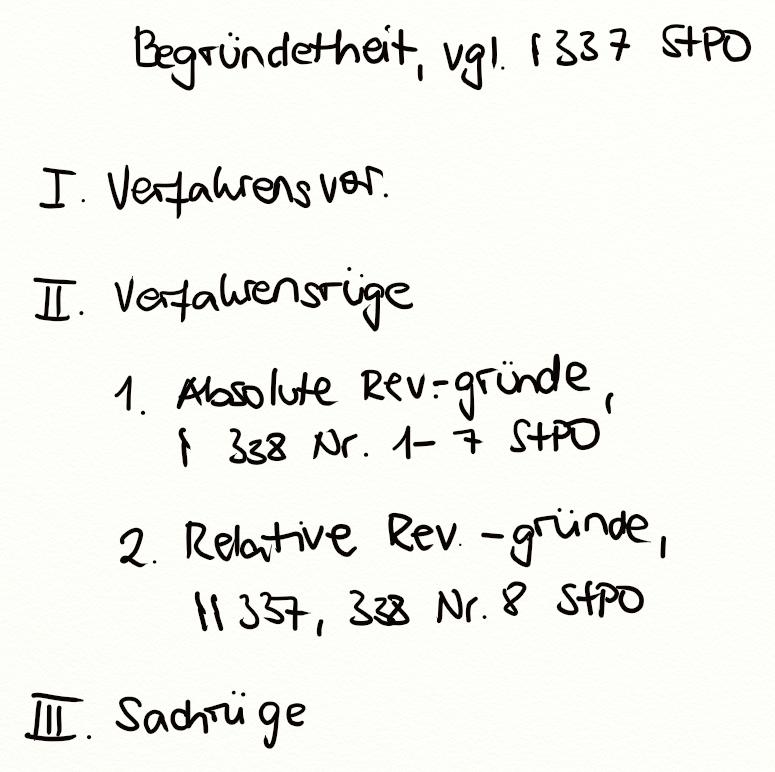 Begründetheit, vgl. § 337 StPO
I. Verfahrensvor.
II. Verfahrensrüge
1. Absolute Rev.-gründe,
§ 338 Nr. 1-7 StPO
2. Relative Rev.-gründe,
§§ 337, 338 Nr. 8 StPO
III. Sachrüge